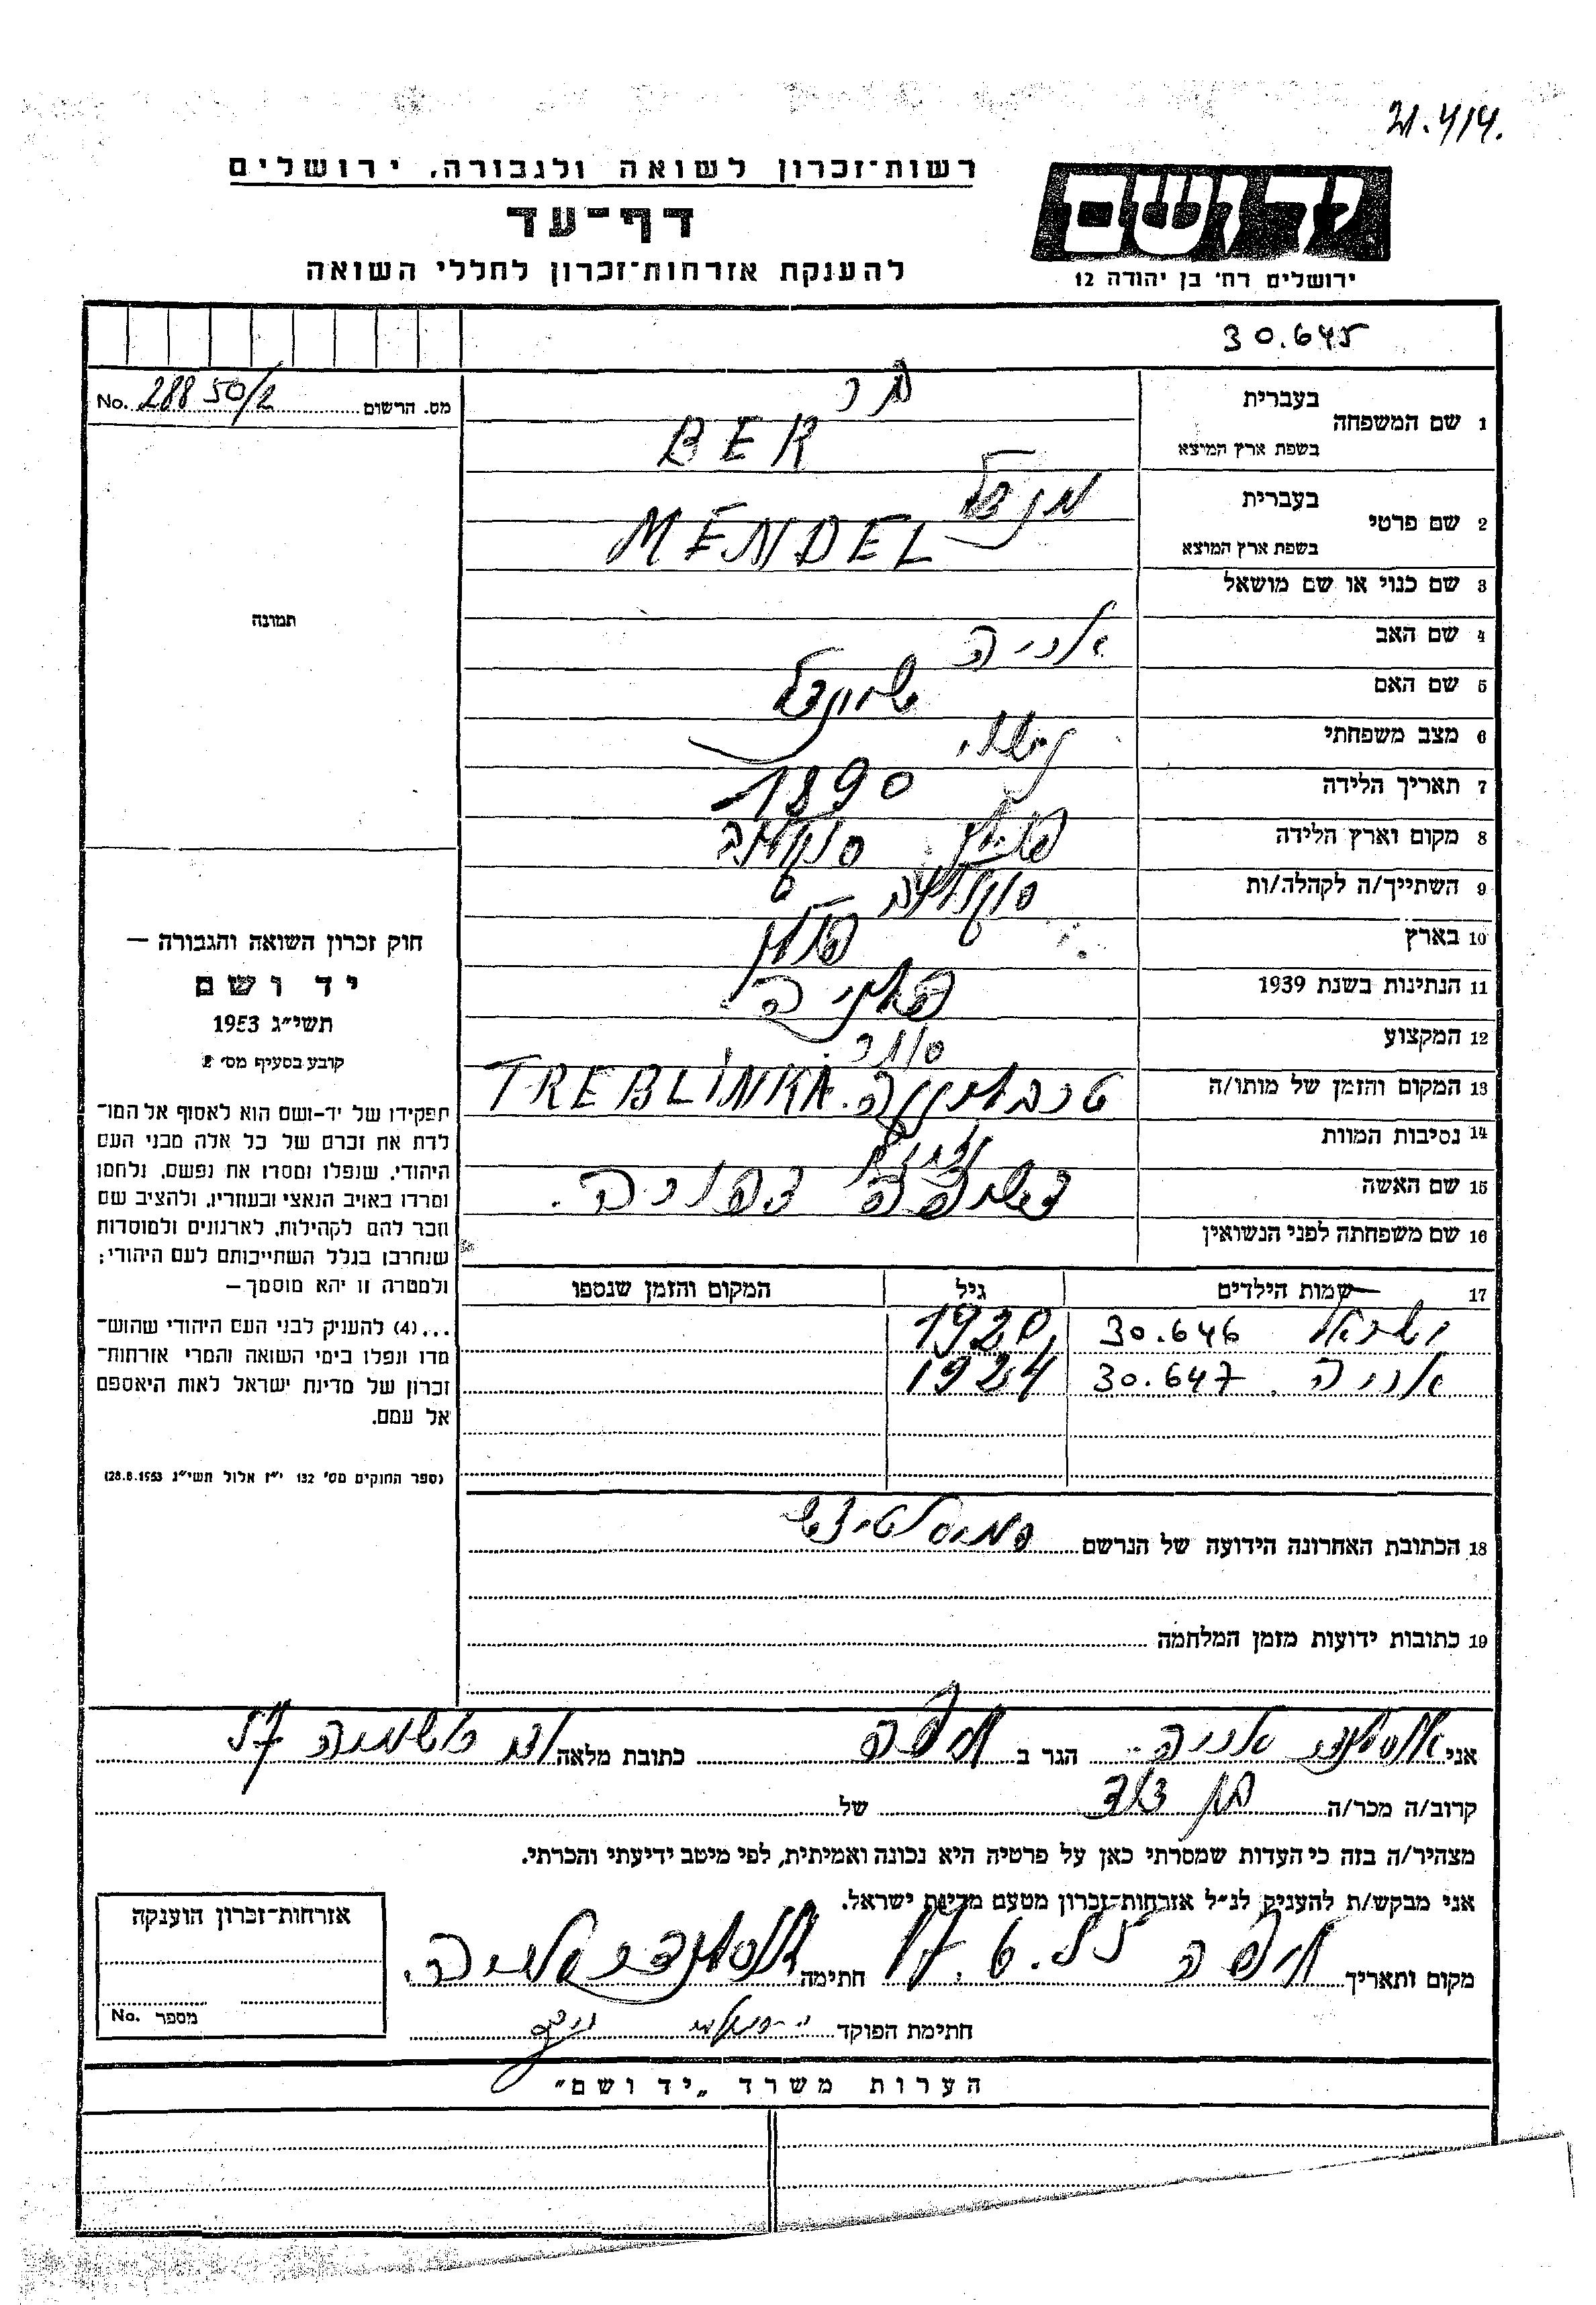 21.414.
רשות־זכרון לשואה ולגבורה, ירושלים
דף־עד
להענקת אזרחות־זכרון לחללי השואה
יד ושם
ירושלים רח' בן יהודה 12
30.645
מס. הרשום 28850/2 No.
1 שם המשפחה
בעברית בר
בשפת ארץ המוצא BER
2 שם פרטי
בעברית מנדל
בשפת ארץ המוצא MENDEL
3 שם כנוי או שם מושאל
4 שם האב אריה
5 שם האם שיינדל
6 מצב משפחתי נשוי
7 תאריך הלידה 1890
8 מקום וארץ הלידה פולין
9 השתייך/ה לקהלה/ות
10 בארץ פולין
11 הנתינות בשנת 1939 פולניה
12 המקצוע סוחר
13 המקום והזמן של מותו/ה טרבלינקה. TREBLINKA
14 נסיבות המוות
15 שם האשה דבורה.
16 שם משפחתה לפני הנשואין
תמונה
חוק זכרון השואה והגבורה –
יד ושם
תשי"ג 1953
קובע בסעיף מס' 2
תפקידו של יד-ושם הוא לאסוף אל המו־
לדת את זכרם של כל אלה מבני העם
היהודי, שנפלו ומסרו את נפשם, נלחמו
ומרדו באויב הנאצי ובעוזריו, ולהציב שם
וזכר להם לקהילות, לארגונים ולמוסדות
שנחרבו בגלל השתייכותם לעם היהודי;
ולמטרה זו יהא מוסמך –
...(4) להעניק לבני העם היהודי שהוש־
מדו ונפלו בימי השואה והמרי אזרחות־
זכרון של מדינת ישראל לאות היאספם
אל עמם.
(ספר החוקים מס' 132 י"ז אלול תשי"ג 28.8.1953)
17 שמות הילדים גיל המקום והזמן שנספו
ישראל 30.646 1920
אריה 30.647 1924
18 הכתובת האחרונה הידועה של הנרשם
19 כתובות ידועות מזמן המלחמה
אני אריה הגר ב חיפה כתובת מלאה 57
קרוב/ה מכר/ה בן דוד של
מצהיר/ה בזה כי העדות שמסרתי כאן על פרטיה היא נכונה ואמיתית, לפי מיטב ידיעתי והכרתי.
אני מבקש/ת להעניק לנ"ל אזרחות־זכרון מטעם מדינת ישראל.
מקום ותאריך חיפה 17.6.55 חתימה
חתימת הפוקד
אזרחות־זכרון הוענקה
מספר No.
הערות משרד „יד ושם"